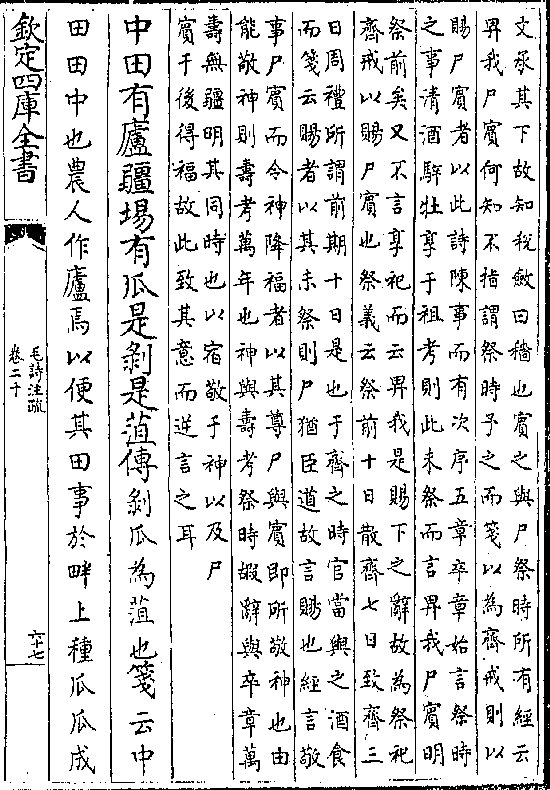 文承其下故知稅斂曰穡也賓之與尸祭時所有經云
畀我尸賓何知不指謂祭時予之而箋以為齊戒則以
賜尸賓者以此詩陳事而有次序五章卒章始言祭時
之事清酒騂牡享于祖考則此未祭而言畀我尸賓明
祭前矣又不言享祀而云畀我是賜下之辭故為祭祀
齊戒以賜尸賓也祭義云祭前十日散齊七日致齊三
日周禮所謂前期十日是也于齊之時官當與之酒食
而箋云賜者以其未祭則尸猶臣道故言賜也經言敬
事尸賓而令神降福者以其尊尸與賓即所敬神也由
能敬神則壽考萬年也神與壽考祭時嘏辭與卒章萬
壽無疆明其同時也以宿敬于神以及尸
賓于後得福故此致其意而逆言之耳
中田有廬疆埸有瓜是剝是菹傳剝瓜為菹也箋云中
田田中也農人作廬焉以便其田事於畔上種瓜瓜成
欽定四庫全書
毛詩注疏
卷二十
六十七